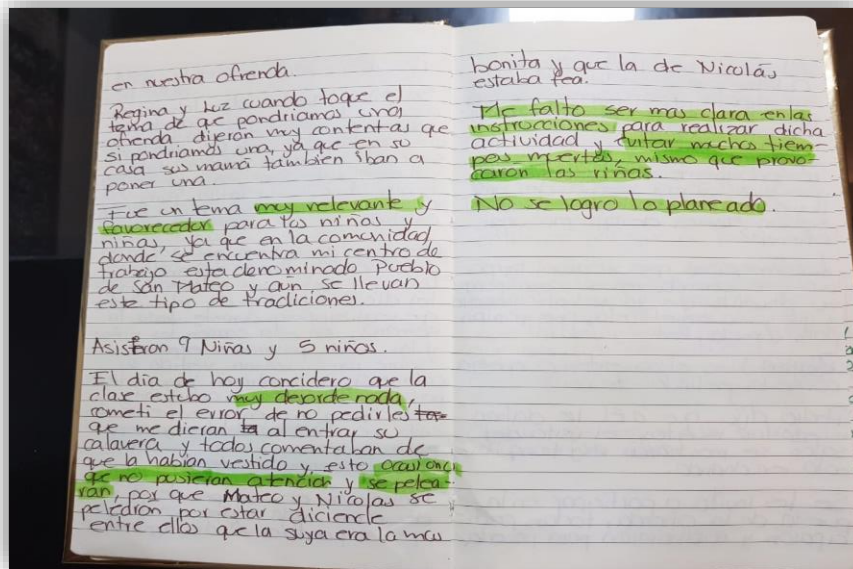 en nuestra ofrenda.
Regina y Luz cuando toque el
tema de que pondriamos una
ofrenda dijeron muy contentas que
si pondriamos una, ya que en su
casa sus mamá tambien iban a
poner una.
Fue un tema muy relevante y
favorecedor para los niños y
niñas, ya que en la comunidad,
donde se encuentra mi centro de
trabajo esta denominado Pueblo
de San Mateo y aún se llevan
este tipo de tradiciones.
Asistieron 9 Niñas y 5 niños.
El día de hoy concidero que la
clase estubo muy desordenada,
cometi el error de no pedirles
que me dieran al entrar su
calavera y todos comentaban de
que la habían vestido y esto ocasiono
que no pusieran atención y se pelea-
ran, por que Mateo y Nicolas se
pelearon por estar diciendo
entre ellos que la suya era la mas
bonita y que la de Nicolás
estaba fea.
Me falto ser mas clara en las
instrucciones para realizar dicha
actividad y evitar muchos tiem-
pos muertos, mismo que provo-
caron las riñas.
No se logro lo planeado.